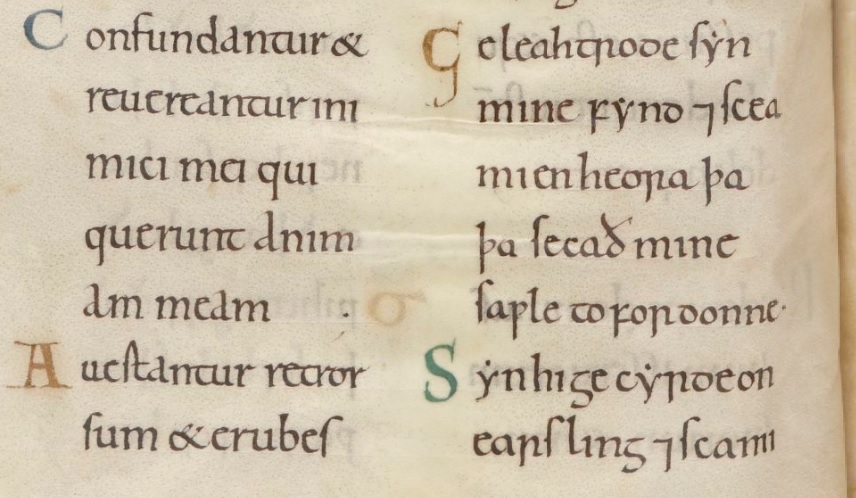 Confundantur &
reuereantur ini
mici mei qui
querunt anim
am meam
Auertantur retror
sum & erubes
Geleahtrode sẏn
mine fẏnd ⁊ scea
mien heora þa
þa secað mine
saƿle to fordonne·
Sẏn hi gecẏrde on
earsling ⁊ scami